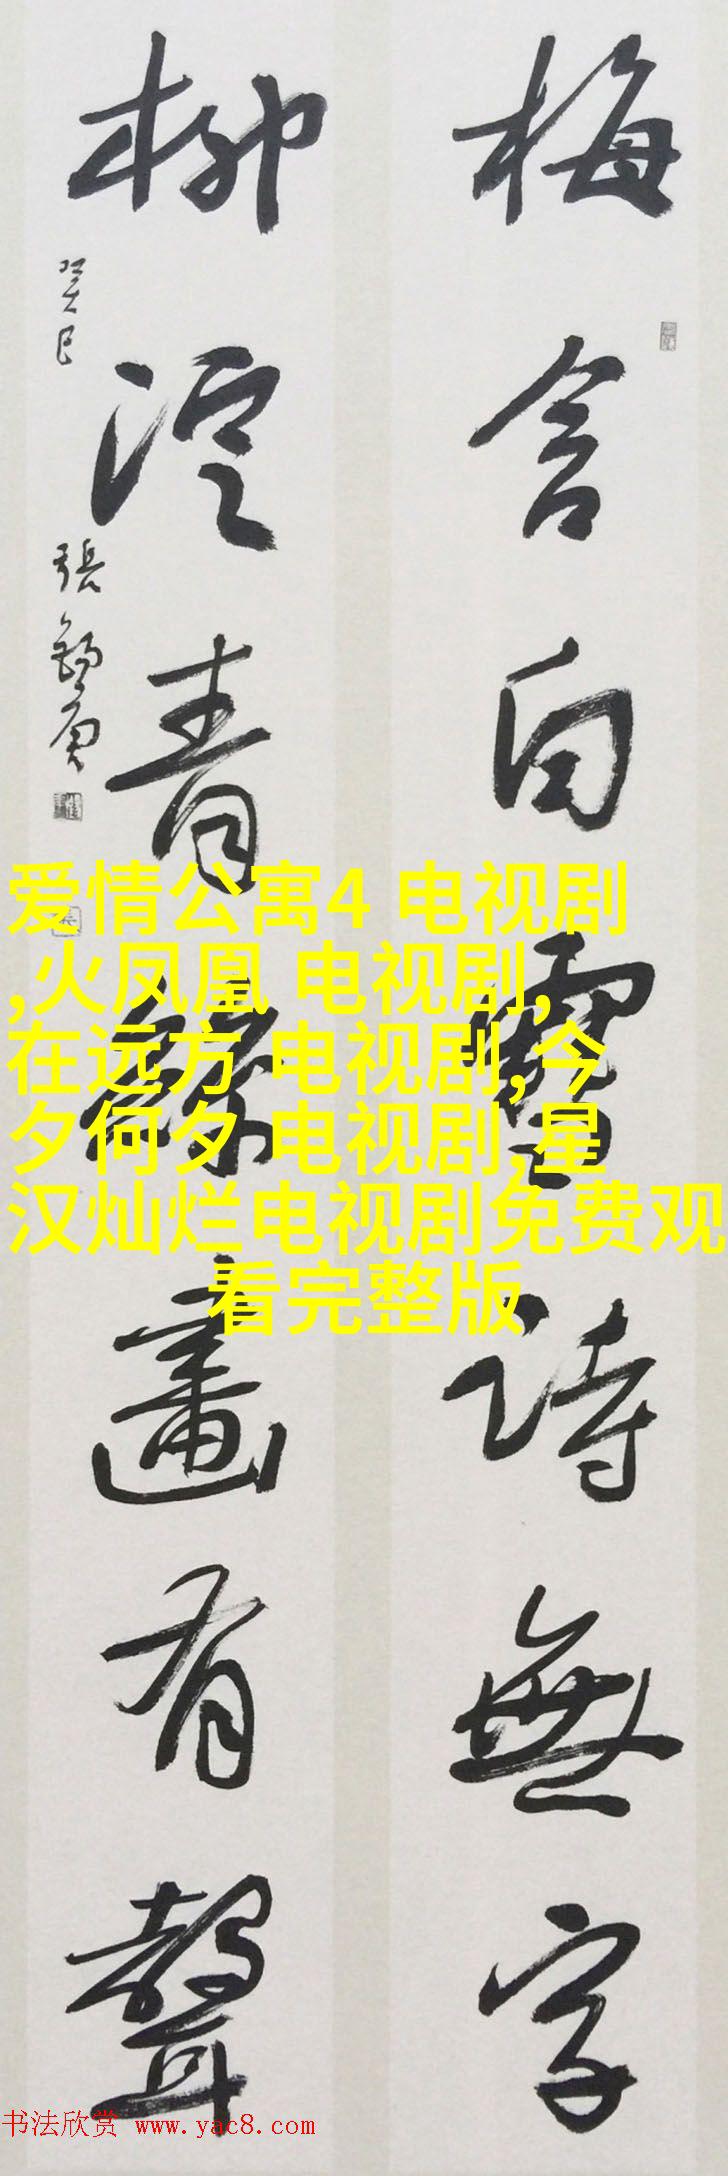 梅含白雪詩無字
柳淀青畫有聲
癸巳
張錫庚
爱情公寓4 电视剧
,火凤凰 电视剧,
在远方 电视剧,今
夕何夕 电视剧,星
汉灿烂电视剧免费观
看完整版
书法欣赏 www.yac8.com